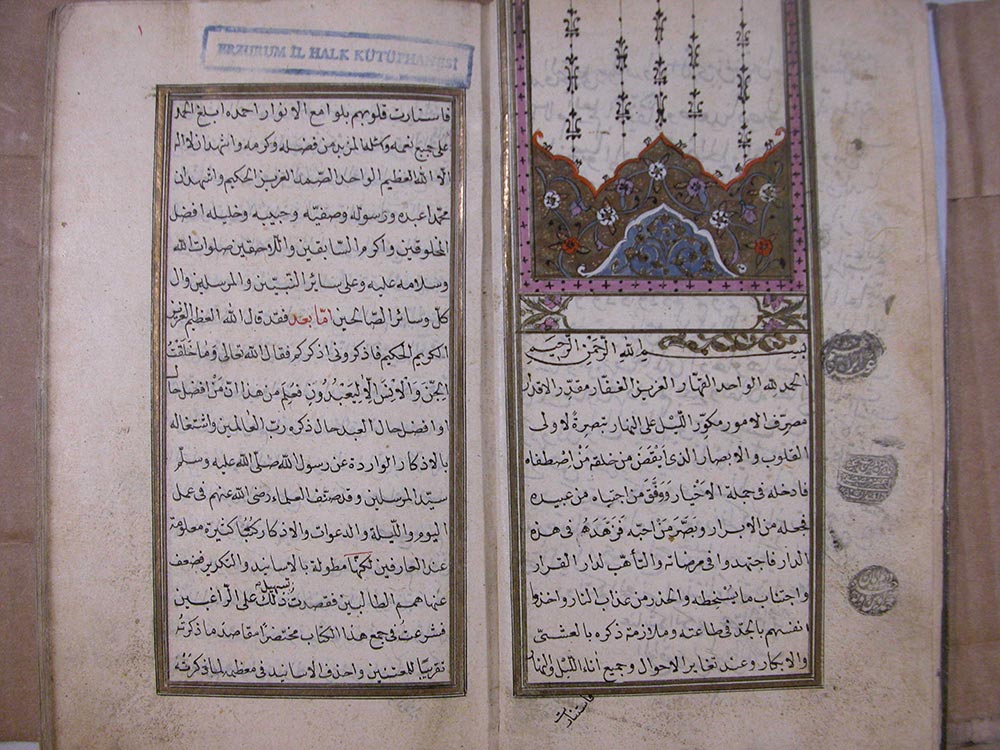 بسم الله الرحمن الرحيم
الحمد لله الواحد القهار العزيز الغفار مقدر الاقدار
مصرف الامور مكور الليل على النهار تبصرة لاولى
القلوب والابصار الذى ايقض من خلقه من اصطفاه
فادخله فى جملة الاخيار ووفق من اجتباه من عبيده
فجعله من الابرار وبصر من احبه فزهدهم فى هذه
الدار فاجتهدوا فى مرضاته والتأهب لدار القرار
واجتناب ما يسخطه والحذر من عذاب النار واخذوا
انفسهم بالجد فى طاعته وملازمة ذكره بالعشى
والابكار وعند تغاير الاحوال وجميع أناء الليل والنهار
فاستنارت
ERZURUM İL HALK KÜTÜPHANESİ
فاستنارت قلوبهم بلوامع الانوار احمده ابلغ الحمد
على جميع نعمه واسئله المزيد من فضله وكرمه واشهد ان لا اله
الا الله العظيم الواحد الصمد العزيز الحكيم واشهد ان
محمدا عبده ورسوله وصفيه وحبيبه وخليله افضل
المخلوقين واكرم السابقين واللاحقين صلوات الله
وسلامه عليه وعلى سائر النبيين والمرسلين وال
كل وسائر الصالحين اما بعد فقد قال الله العظيم العزيز
الكريم الحكيم فاذكرونى اذكركم فقال الله تعالى وما خلقت
الجن والانس الا ليعبدون فعلم من هذا ان من افضل حال
او افضل حال العبد حال ذكره رب العالمين واشتغاله
بالاذكار الواردة عن رسول الله صلى الله عليه وسلم
سيد المرسلين وقد صنف العلماء رضى الله عنهم فى عمل
اليوم والليلة والدعوات والاذكار كتبا كثيرة معلومة
عند العارفين لكنها مطولة بالاسانيد والتكرير فضعف
عنها همم الطالبين فقصدت تسهيل ذلك على الراغبين
فشرعت فى جمع هذا الكتاب مختصرا مقاصد ما ذكرته
تقريبا للمعتنين واحذف الاسانيد فى معظمه لما ذكرته